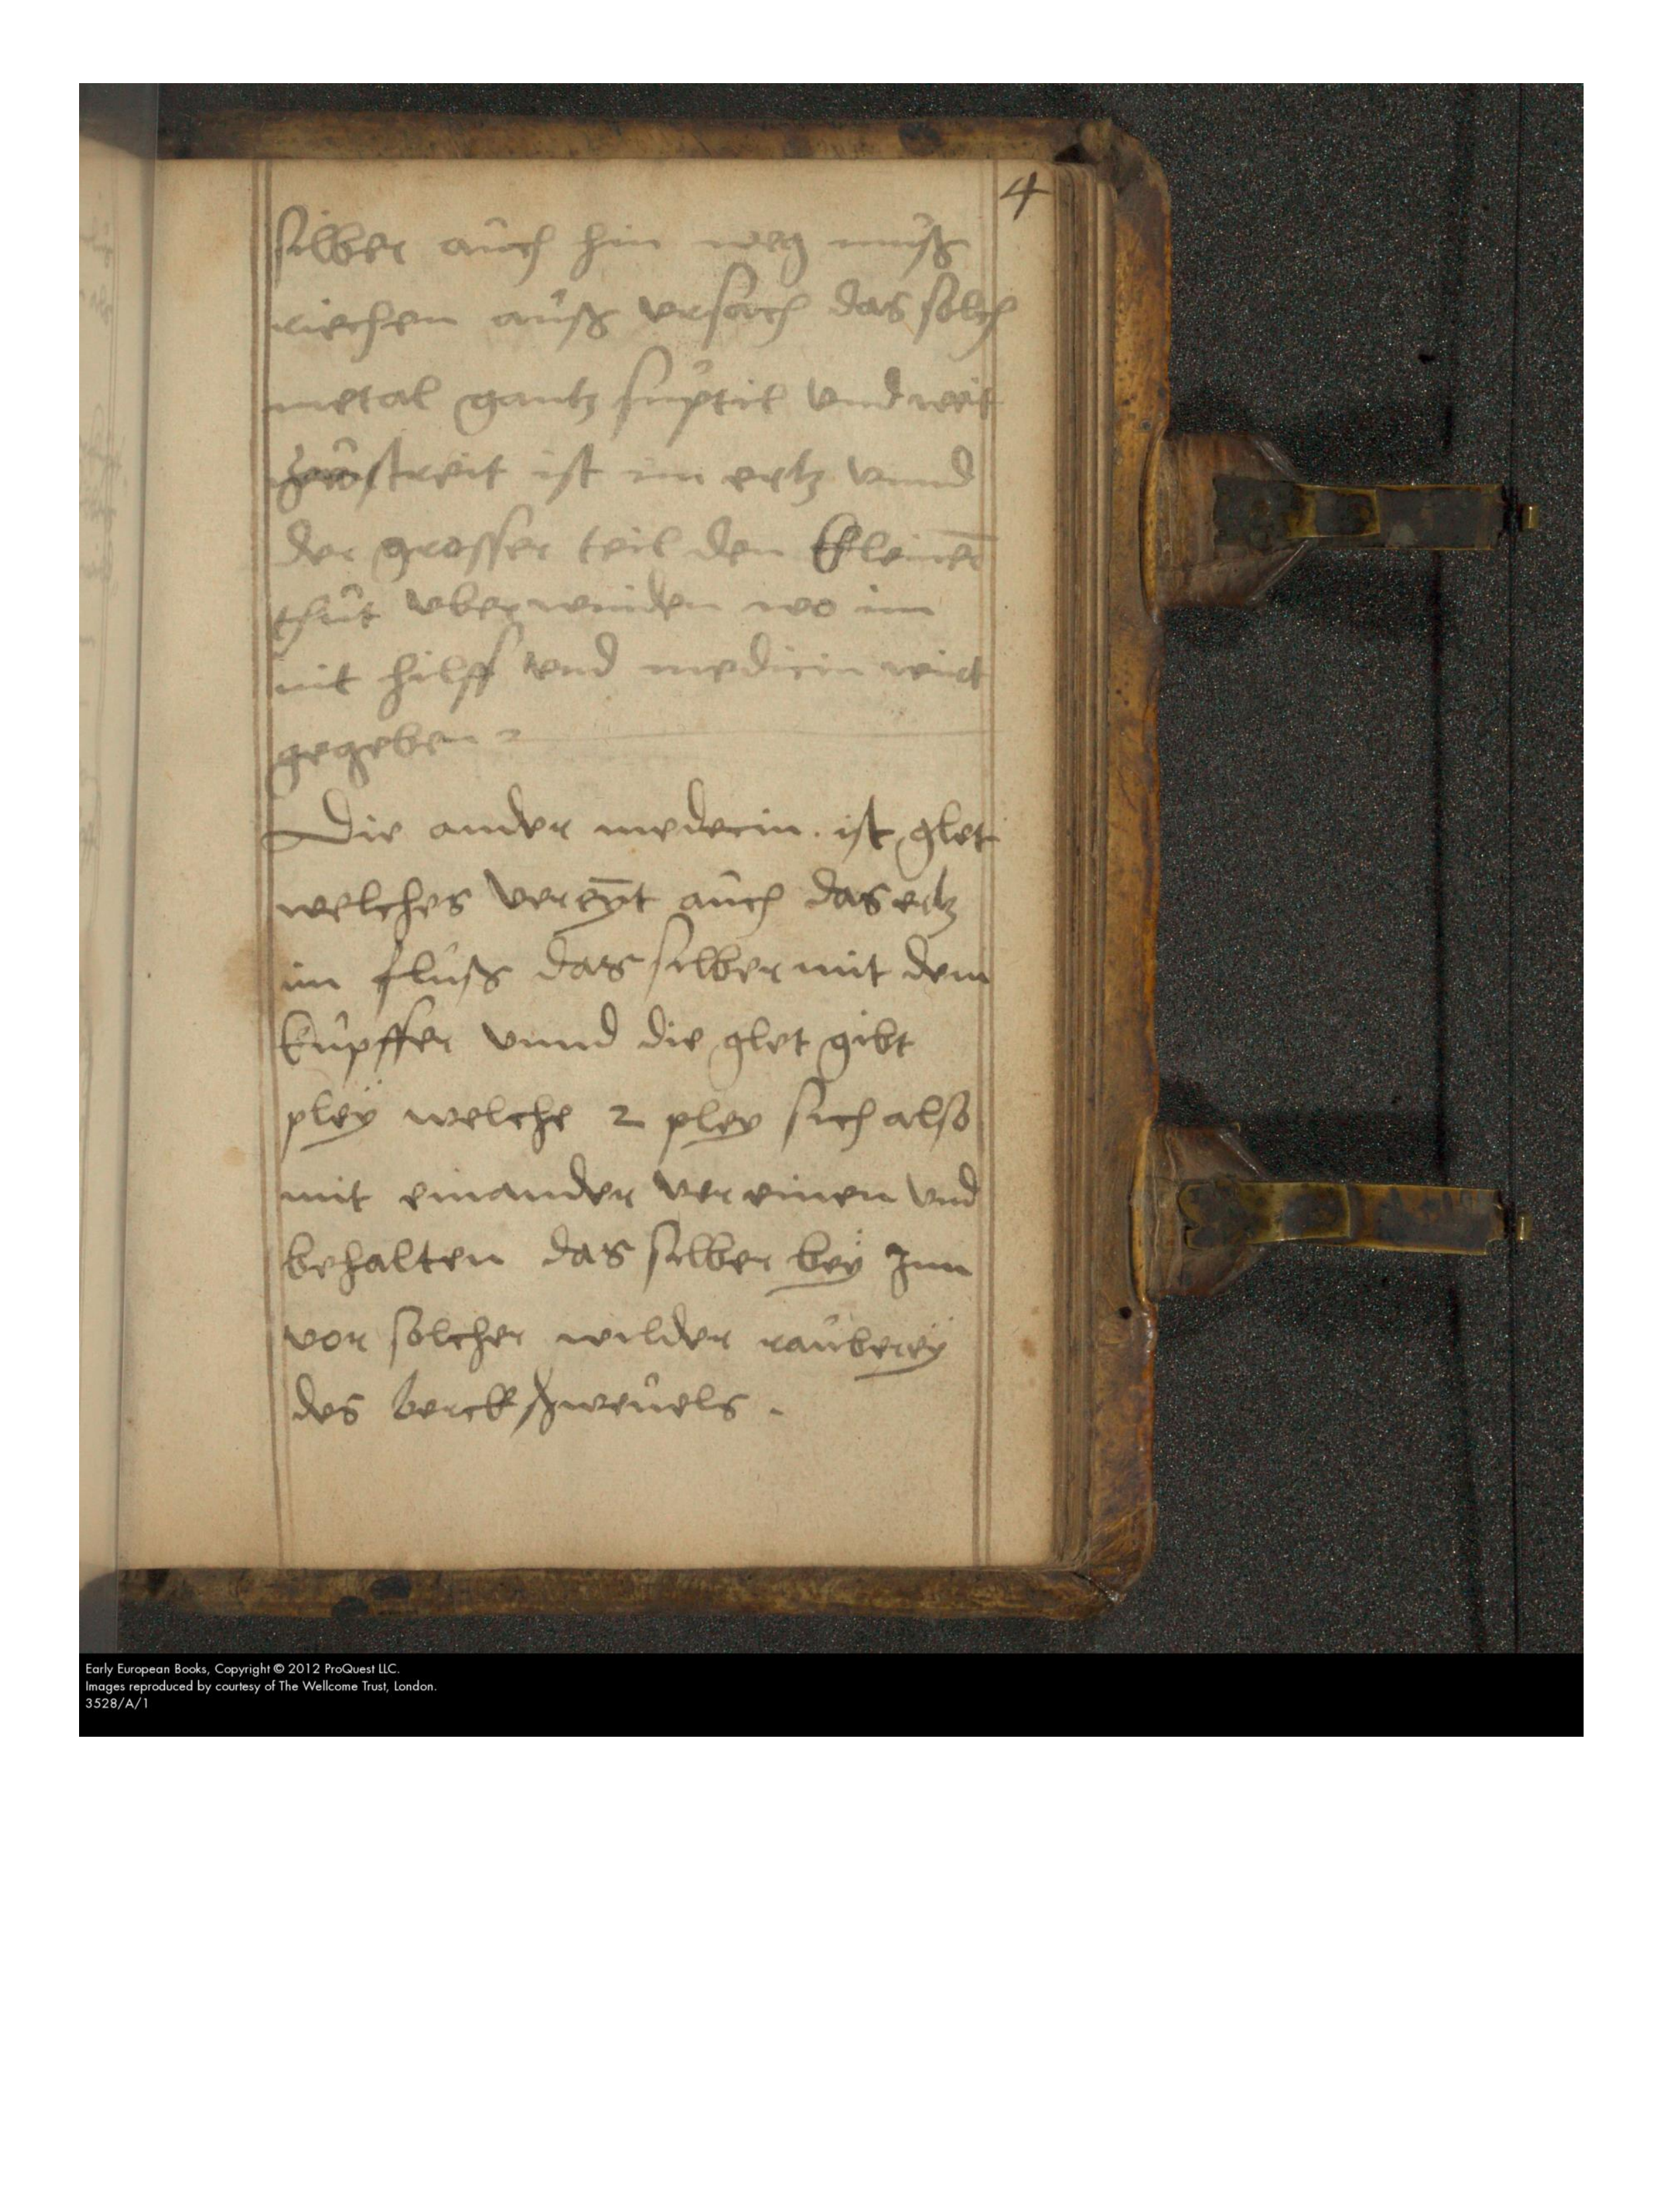 4
silber auch hin weg muß
riechen auß vrsach das solch
metal gantz suptil vnd weit
zerstreit ist im ertz vnnd
der grosser teil den kleinen̄
thut vberwinden wo im
nit hilff vnd medicin wirt
gegeben
Die ander medecin. ist glet
welches vereyn̄t auch das ertz
im fluß das silber mit dem
kupffer vnnd die glet gibt
pleÿ welche 2 pley sich also
mit einander vereinen vnd
behalten das silber beÿ Inn
vor solcher wilder raubereÿ
des berckschweuels.
Early European Books, Copyright © 2012 ProQuest LLC.
Images reproduced by courtesy of The Wellcome Trust, London.
3528/A/1